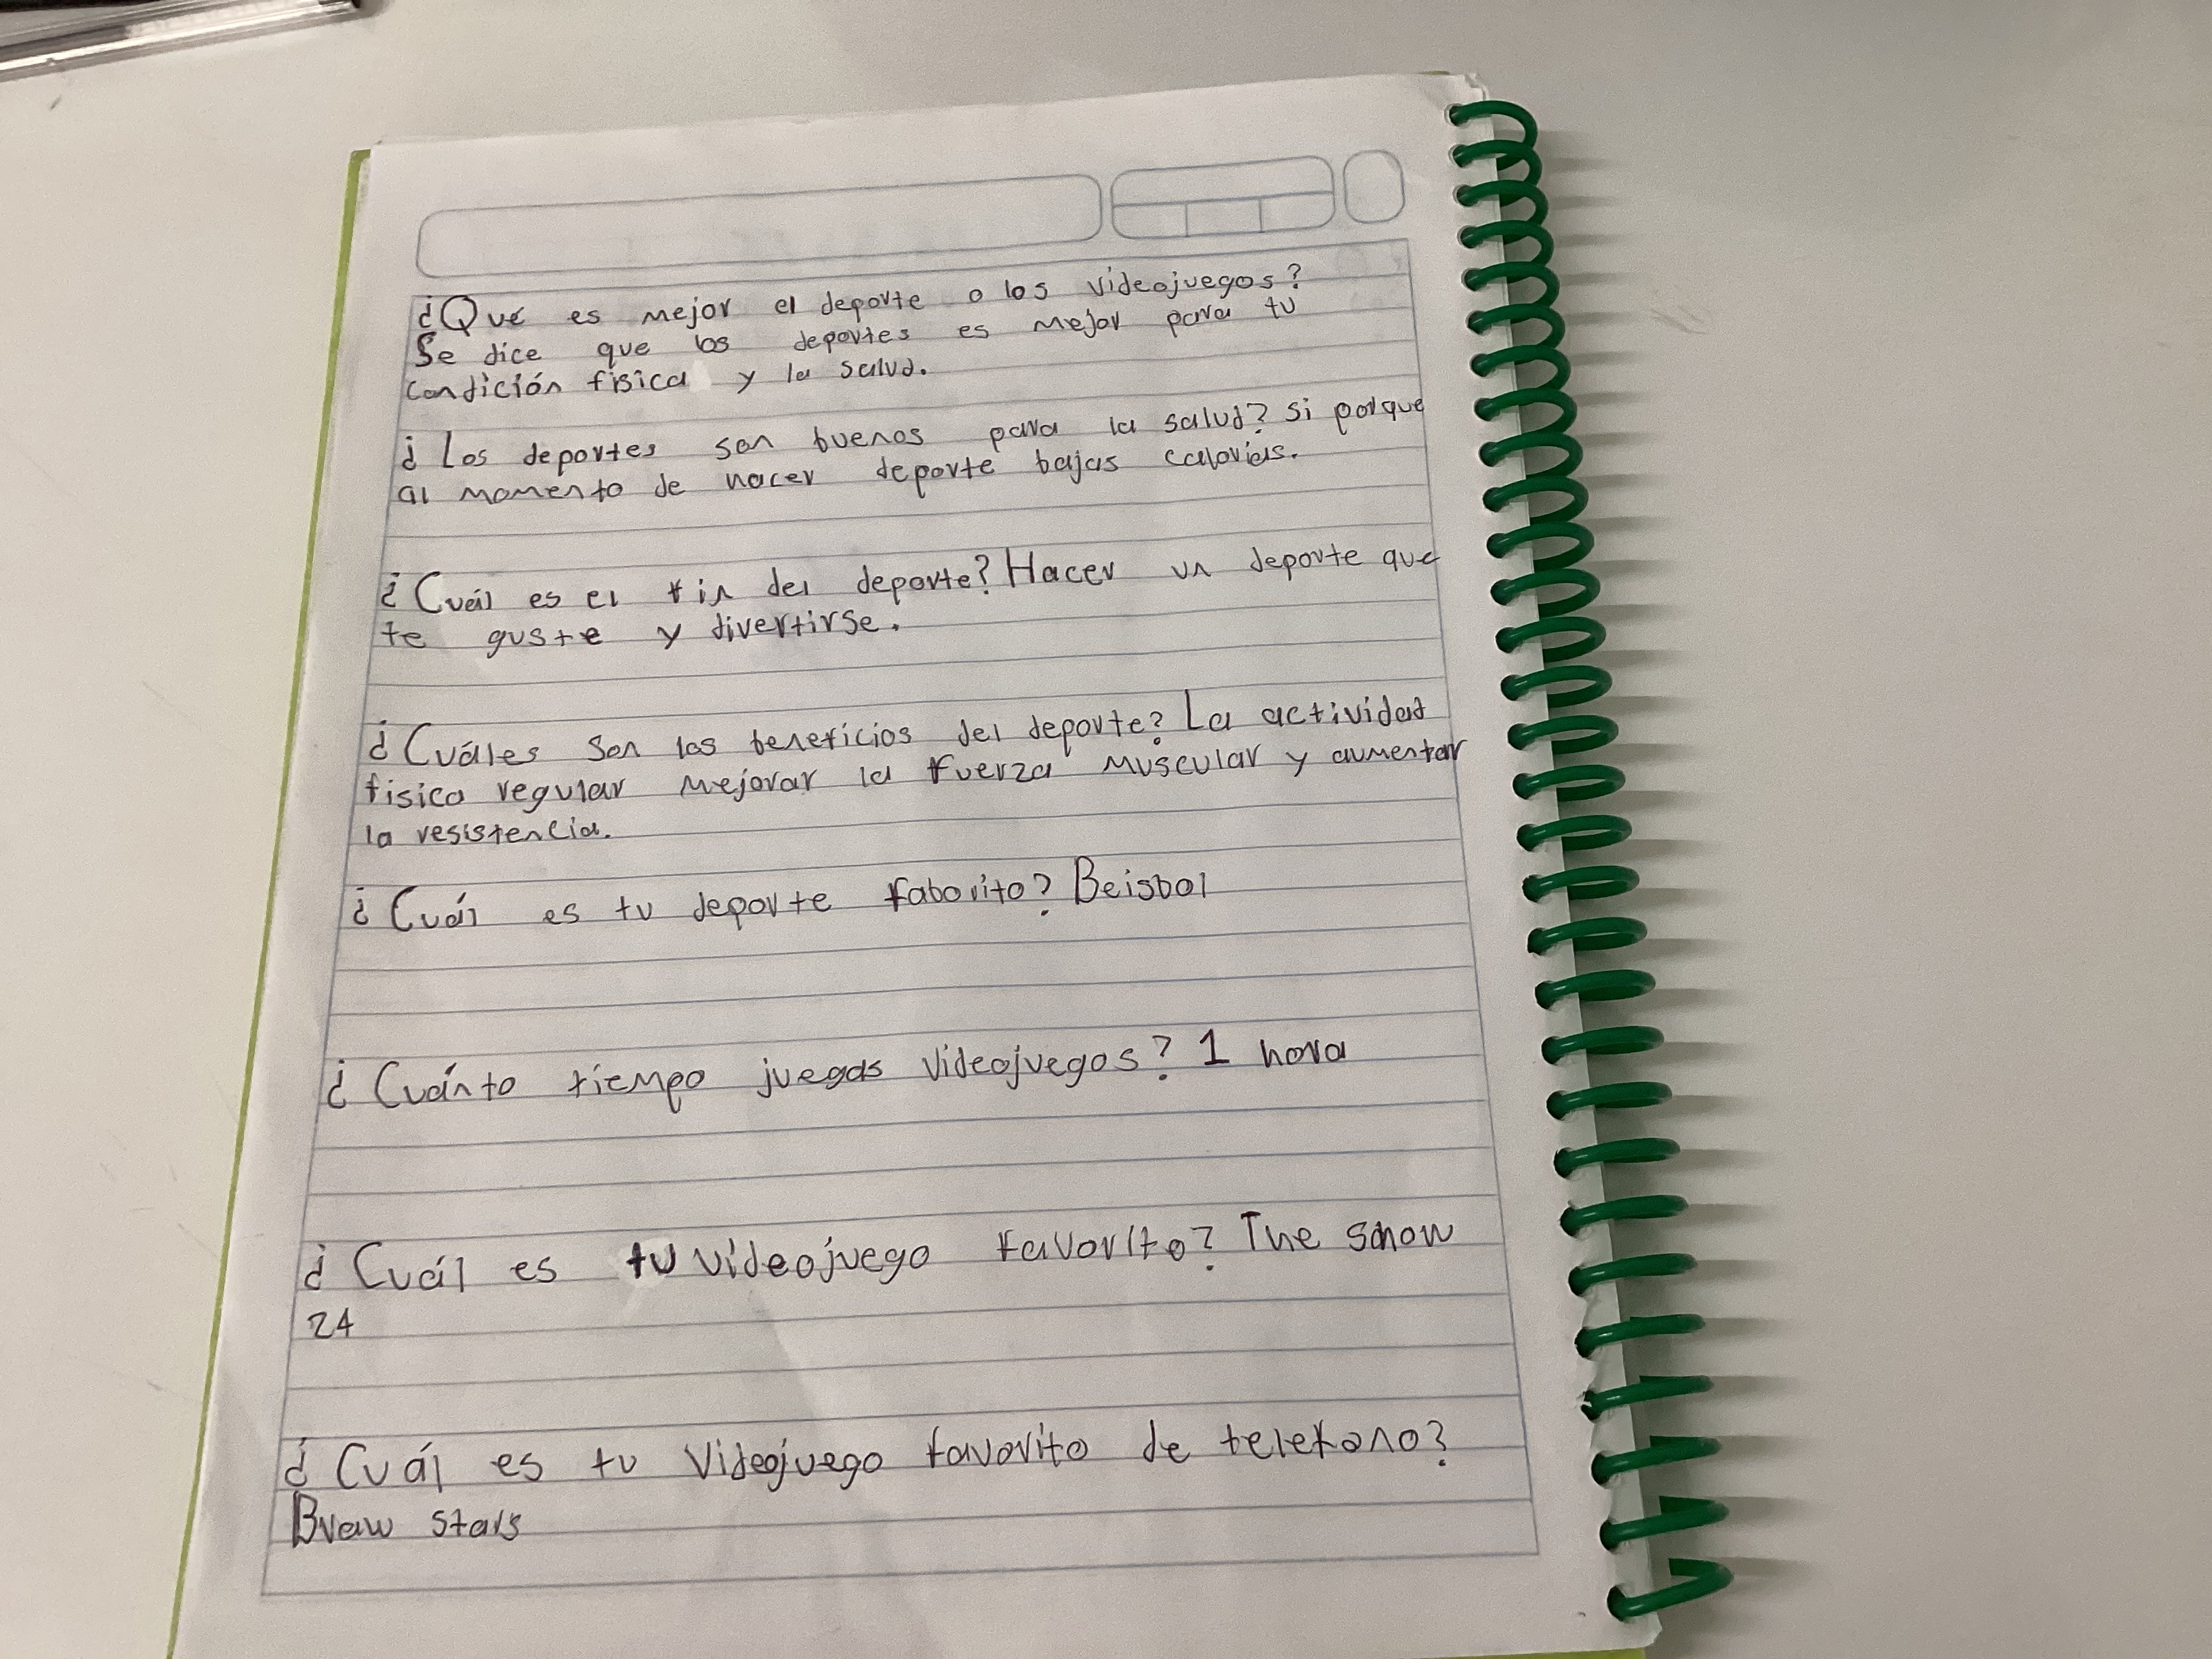 ¿Qué es mejor el deporte o los videojuegos?
Se dice que los deportes es mejor para tu
condición fisica y la salud.
¿Los deportes son buenos para la salud? Si porque
al momento de hacer deporte bajas calorias.
¿Cuál es el fin del deporte? Hacer un deporte que
te guste y divertirse.
¿Cuáles son los beneficios del deporte? La actividad
fisica regular mejorar la fuerza muscular y aumentar
la resistencia.
¿Cuál es tu deporte faborito? Beisbol
¿Cuánto tiempo juegas videojuegos? 1 hora
¿Cuál es tu videojuego favorito? The show
24
¿Cuál es tu videojuego favorito de telefono?
Braw stars